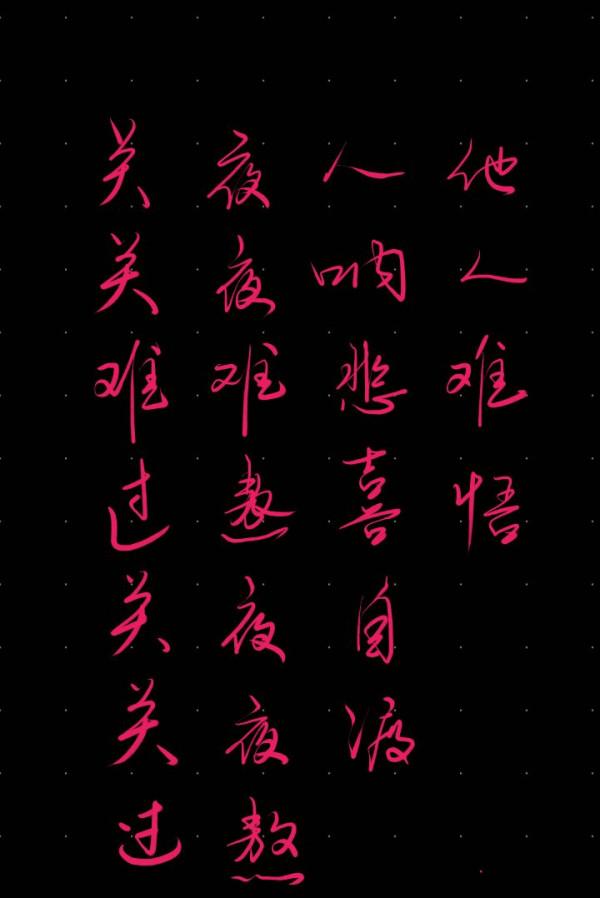 关关难过关关过
夜夜难熬夜夜熬
人呐悲喜自渡
他人难悟